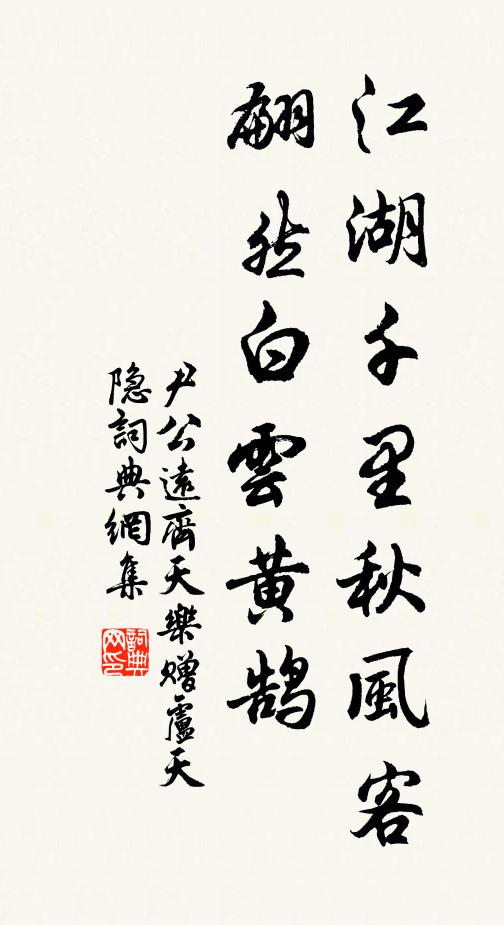 江湖千里秋風客
翩然白雲黄鹄
尹公遠齊天樂贈盧天
隐詞典網集
詞典網印